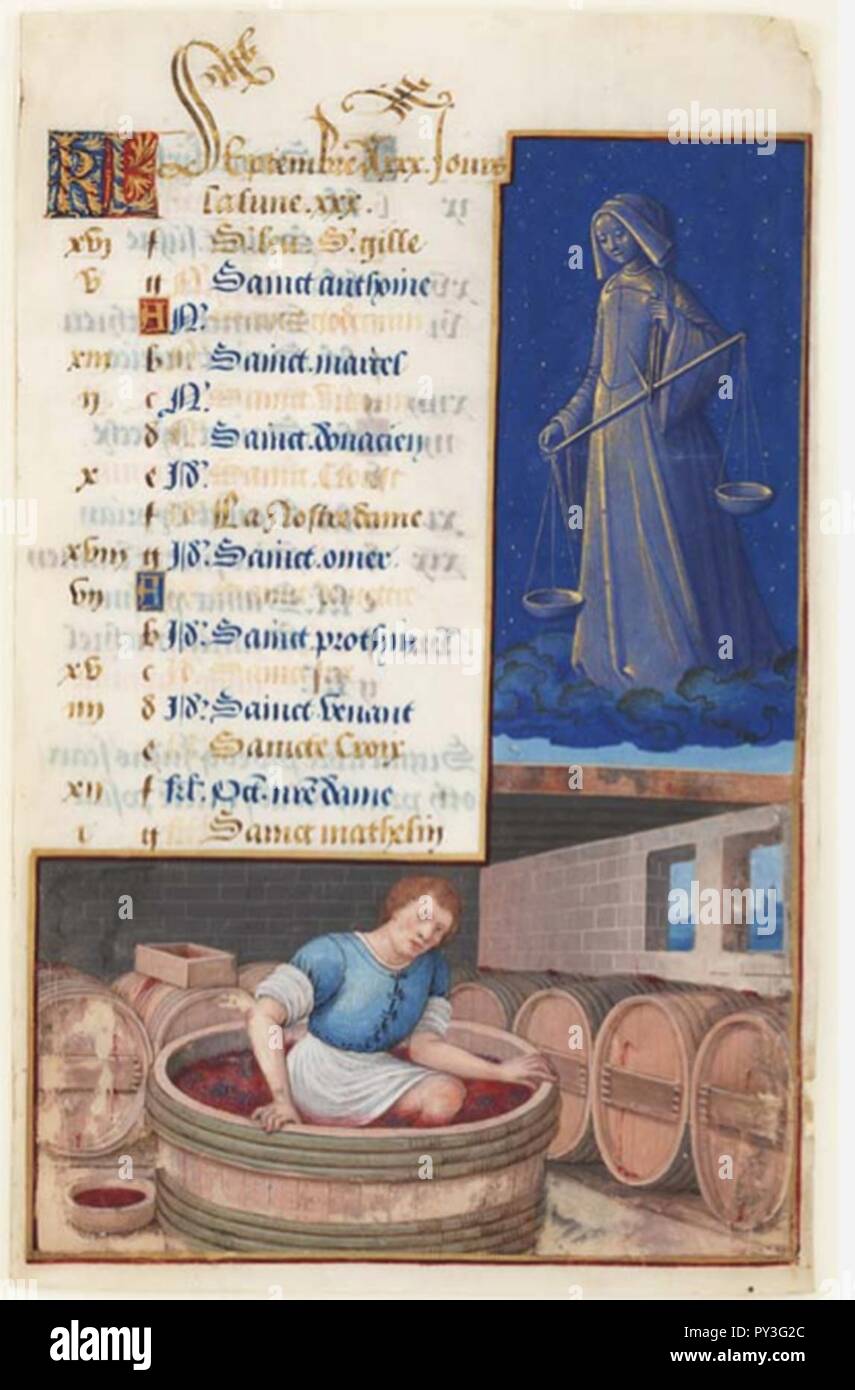 KL Septembre a xxx. Jours
La lune. xxx.
xvj f S. leu S. gille
v g Sainct anthoine
A N.
xiij b Sainct. marcel
ij c N.
d Sainct. donacien
x e Jd.
f La nostre dame
xviij g Jd. Sainct. omer
vij A
b Jd. Sainct. prothin
xv c
iiij d Jd. Sainct. venant
e Saincte Croix
xij f kl. Oct. nre dame
i g Sainct mathelin
alamy
a
alamy stock photo
PY3G2C
www.alamy.com